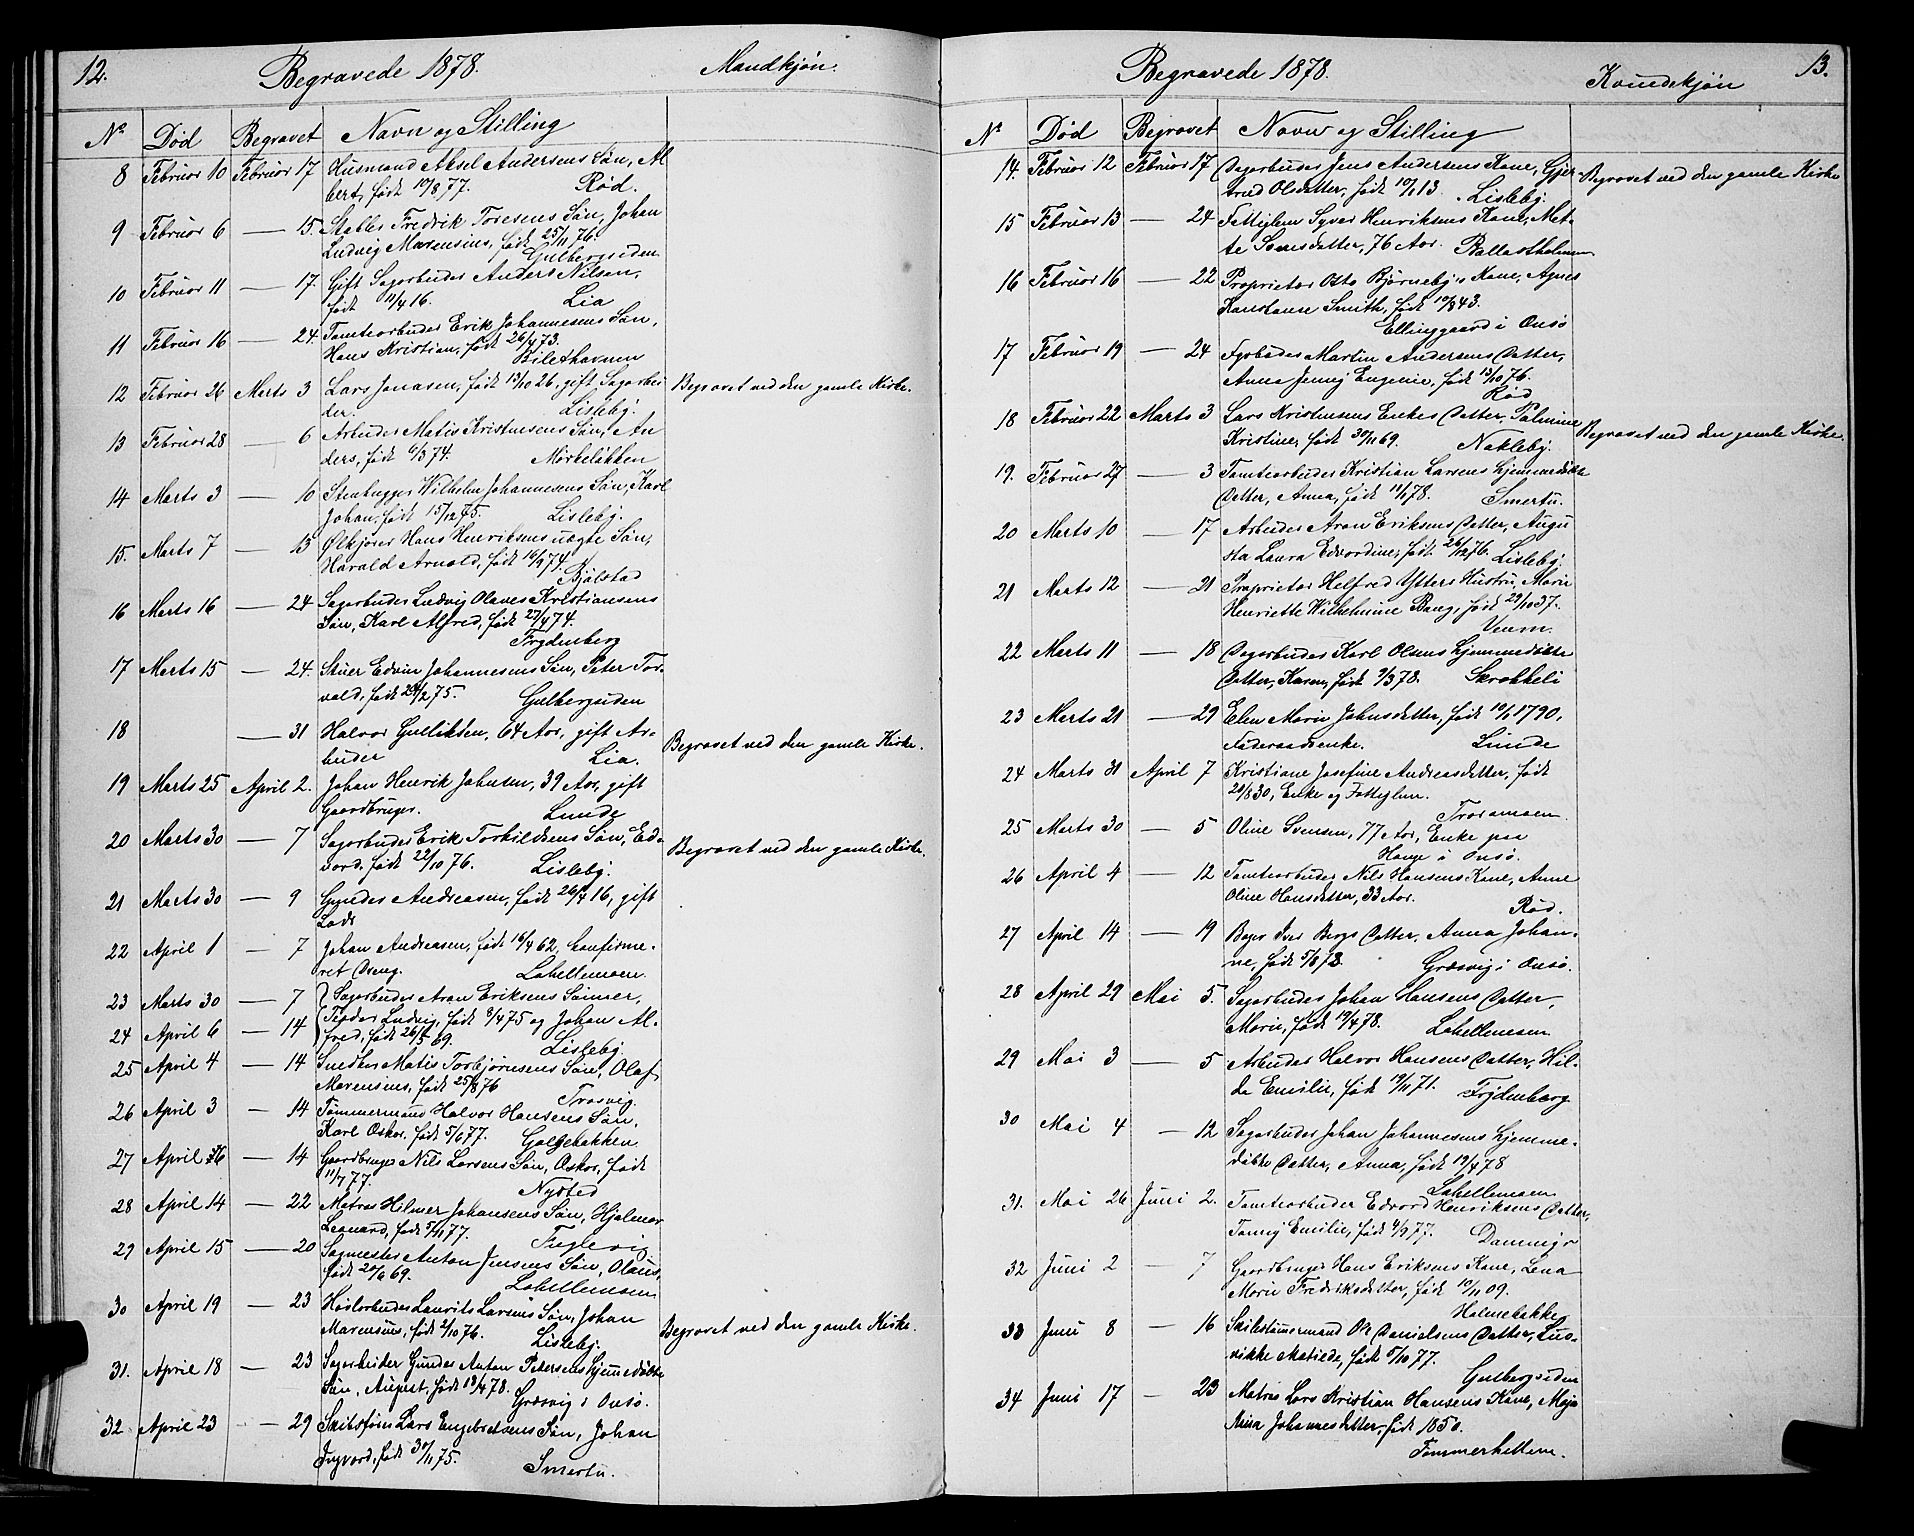 12.
Begravede 1878.
Mandkjøn.
No Død Begravet Navn og Stilling
8 Februar 10 Februar 17 Husmand Aksel Andersens Søn, Al
bert, født 10/8 77. Rød.
9 Februar 6 — 15. Stabler Fredrik Toresens Søn, Johan
Ludvig Marensius, født 25/11 76. Gulbergsiden
10 Februar 11 — 17. Gift Sagarbuder Anders Nilsen,
født 11/4 16. Lia
11 Februar 16 — 24 Tomtearbuder Erik Johannesens Søn,
Hans Kristian, født 26/1 73.
12 Februar 26 Marts 3 Lars Jonasen, født 13/10 26, gift Sagarbei Begravet ved den gamle Kirke.
der. Lisleby.
13 Februar 28 — 6 Arbuder Matis Kristensens Søn, An
ders, født 6/3 74. Mørkeløkken
14 Marts 3 — 10 Stenhugger Wilhelm Johannesens Søn, Karl
Johan, født 15/12 75. Lisleby.
15. Marts 7 — 15 Ølkjører Hans Henriksens uægte Søn,
Harald Arnold, født 16/2 74. Bjølstad
16 Marts 16 — 24 Sagarbuder Ludvig Olaves Kristiansens
Søn, Karl Alfred, født 27/4 74.
Frydenberg
17 Marts 15 — 24. Stuer Edvin Johannesens Søn, Peter Tor-
vald, født 24/2 75. Gulbergsiden
18 — 31 Halvor Gulliksen, 64 Aar, gift Ar- Begravet ved den gamle Kirke.
buder Lia.
19 Marts 25 April 2. Johan Henrik Johnsen, 39 Aar, gift
Gaardbruger. Lunde
20 Marts 30 — 7 Sagarbuder Erik Torkildsens Søn, Ed- Begravet ved den gamle Kirke.
vard, født 22/10 76. Lisleby.
21 Marts 30 — 9 Gunder Andreasen, født 26/4 16, gift
Lods
22 April 1 — 7 Johan Andreasen, født 16/4 62, konfirme-
ret Dreng. Labellemoen.
23 Marts 30 — 7 Sagarbuder Aron Eriksens Sønner,
24 April 6 — 14 Teodor Ludvig, født 8/4 75 og Johan Al-
fred, født 26/5 69. Lisleby
25 April 4 — 14 Snedker Matis Torbjørnsens Søn, Olaf
Marensius, født 25/8 76 Trosvig.
26 April 3 — 14 Tømmermand Halvor Hansens Søn,
Karl Oskar, født 5/6 77. Galgebakken
27 April 6 — 14 Gaardbruger Nils Larsens Søn, Oskar, født
11/7 77. Nysted
28 April 14 — 22 Matros Hilmer Johansens Søn, Hjalmar
Leonard, født 5/11 77. Fuglevig.
29 April 15 — 20 Sagmester Anton Jensens Søn, Olaus,
født 20/6 69. Labellemoen
30 April 19 — 23 Høvlarbuder Laurits Larsens Søn, Johan Begravet ved den gamle Kirke.
Marensius, født 2/10 76. Lisleby.
31. April 18 — 23 Sagarbeider Gunder Anton Petersens hjemmedøbte
Søn, August, født 13/4 78. Græsvig i Onsø.
32. April 23 — 29 Skibstøm Lars Engebretsens Søn, Johan
Ingvard, født 30/11 75. Smertu.
13.
Begravede 1878.
Kvindekjøn
No Død Begravet Navn og Stilling
14. Februar 12 Februar 17 Sagarbuder Jens Andersens Kone, Gjer- Begravet ved den gamle Kirke
trud Olsdatter, født 10/1 13. Lisleby.
15 Februar 13 — 24 Fattiglem Syver Henriksens Kone, Met-
te Sørensdatter, 76 Aar. Ballastholmen
16 Februar 16 — 22 Proprietær Otto Bjørneby's Kone, Agnes
Konstanse Smith, født 10/8 43.
Ellinggaard i Onsø
17 Februar 19 — 24 Fyrbøder Martin Andersens Datter,
Anna Jenny Eugenie, født 13/10 76.
Rød
18 Februar 22 Marts 3 Lars Kristensens Enkes Datter, Palmine Begravet ved den gamle Kirke.
Kristine, født 30/11 69. Nakleby.
19. Februar 27 — 3 Tomtearbuder Kristian Larsens hjemmedøbte
Datter, Anna, født 11/1 78. Smertu.
20 Marts 10 — 17 Arbuder Aron Eriksens Datter, Augu
sta Laura Edvardine, født 26/12 76. Lisleby.
21 Marts 12 — 21 Proprietær Helfred Ytters Hustru, Marie
Henriette Wilhelmine Bang, født 29/10 37.
Veum.
22 Marts 11 — 18 Sagarbuder Karl Olsens hjemmedøbte
Datter, Karen, født 9/3 78. Skrakkeli
23 Marts 21 — 29 Elen Marie Johnsdatter, født 10/1 1790,
Føderaadsenke. Lunde
24 Marts 31 April 7 Kristiane Josefine Andreasdatter, født
20/8 30, Enke og Fattiglem.
Traramoen.
25 Marts 30 — 5 Oline Svensen, 77 Aar, Enke paa
Hauge i Onsø.
26 April 4 — 12 Tomtearbuder Nils Hansens Kone, Anne
Oline Hansdatter, 33 Aar. Rød.
27 April 14 — 19 Bager Iver Bergs Datter, Anna Johan-
ne, født 5/8 72. Græsvig i Onsø.
28 April 29 Mai 5. Sagarbuder Johan Hansens Datter,
Marie, født 19/4 78. Labellemoen
29 Mai 3 — 5 Arbuder Halvor Hansens Datter, Hil-
da Emilie, født 19/11 71. Frydenberg
30 Mai 4 — 12 Sagarbuder Johan Johannesens hjemme-
døbte Datter, Anna, født 19/4 78
Labellemoen
31. Mai 26 Juni 2. Tomtearbuder Edvard Henriksens Datter,
Fanny Emilie, født 4/9 77. Dammyr
32 Juni 2 — 7 Gaardbruger Hans Eriksens Kone, Lena
Marie Fredriksdatter, født 10/11 09.
Holmebakke
33 Juni 8 — 16 Skibstømermand Ole Danielsens Datter, Lud-
vikke Matilde, født 5/10 77.
Gulbergsiden
34 Juni 17 — 23 Matros Lars Kristian Hansens Kone, Maja
Mina Johannesdatter, født 1850.
Tømmerheltene.